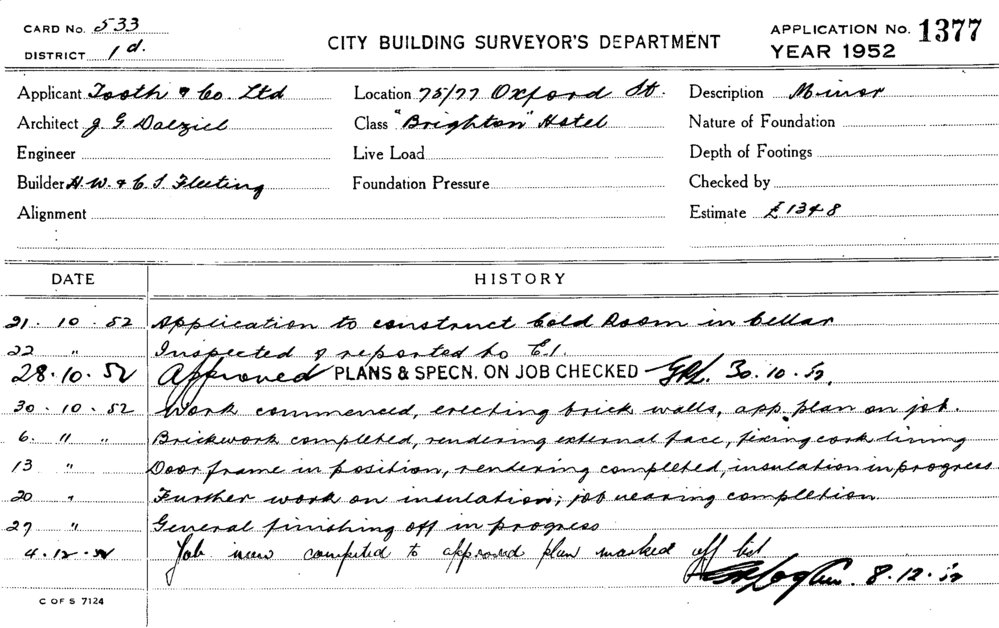 CARD NO. 533
DISTRICT 1d.
CITY BUILDING SURVEYOR'S DEPARTMENT
APPLICATION NO. 1377
YEAR 1952
Applicant Tooth & Co. Ltd
Location 75/77 Oxford St.
Description Minor
Architect J. G. Dalziel
Class "Brighton" Hotel
Nature of Foundation
Engineer
Live Load
Depth of Footings
Builder H. W. & C. S. Fleeting
Foundation Pressure
Checked by
Alignment
Estimate £1348
DATE HISTORY
21. 10. 52 Application to construct Cold Room in Cellar
22 " Inspected & reported to C.I.
28. 10. 52 Approved PLANS & SPECN. ON JOB CHECKED 30. 10. 52.
30. 10. 52 Work commenced, erecting brick walls, app. plan on job.
6. " " Brickwork completed, rendering external face, fixing cork lining
13 " Door frame in position, rendering completed, insulation in progress
20 " Further work on insulation; job nearing completion
27 " General finishing off in progress
4. 12. 52 Job now completed to approved plan marked off list
8. 12. 52
C OF S 7124